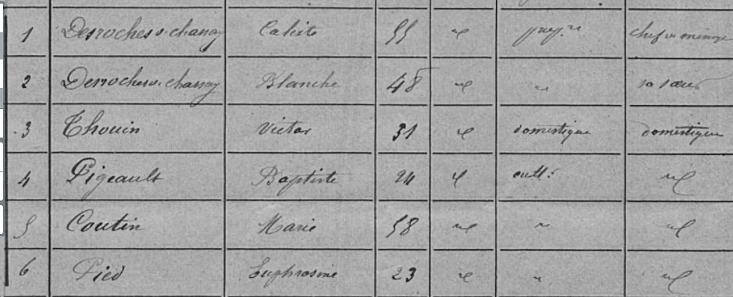 1 Desroches v. chassay Calixte 55 " prop.re chef de ménage
2 Desroches v. chassay Blanche 48 " " sa sœur
3 Thouin Victor 31 " domestique domestique
4 Pigeault Baptiste 24 " cult. "
5 Coutin Marie 58 " " "
6 Pied Euphrosine 23 " " "